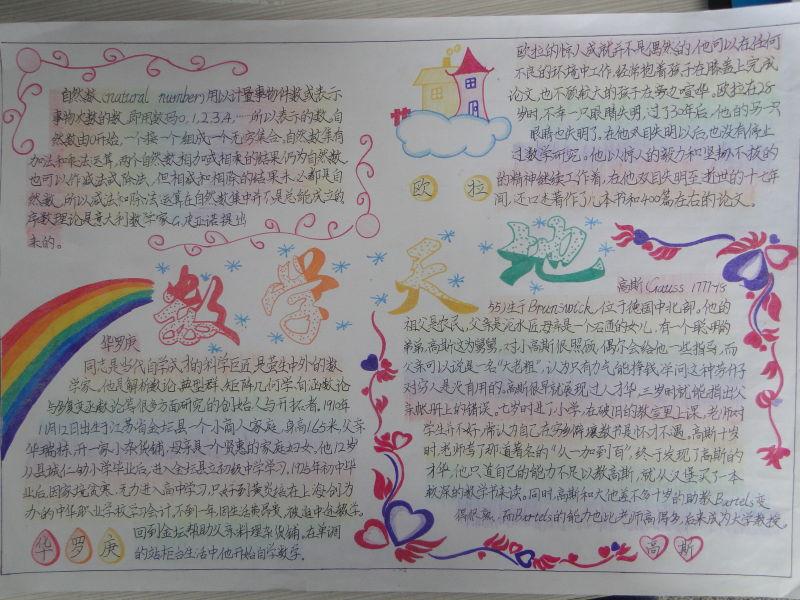 自然数(natural number)用以计量事物件数或表示
事物次数的数。即用数码0,1,2,3,4,……所以表示的数,自
然数由0开始,一个接一个组成一个无穷集合。自然数集有
加法和乘法运算,两个自然数相加或相乘的结果仍为自然数,
也可以作减法或除法,但相减和相除的结果未必都是自
然数,所以减法和除法运算在自然数集中并不是总能成立的
序数理论是意大利数学家G.皮亚诺提出
来的。
欧拉的惊人成就并不是偶然的,他可以在任何
不良的环境中工作,经常抱着孩子在膝盖上完成
论文,也不顾较大的孩子在旁边喧哗。欧拉在28
岁时,不幸一只眼睛失明,过了30年后,他的另一只
眼睛也失明了,在他双目失明以后,也没有停止
过数学研究。他以惊人的毅力和坚韧不拔的
的精神继续工作着,在他双目失明至逝世的十七年
间,还口述著作了几本书和400篇左右的论文。
欧拉
数学天地
华罗庚
同志是当代自学成才的科学巨匠,是蜚生中外的数
学家,他是解析数论,典型群,矩阵几何学,自函数论
与多复变函数论等很多方面研究的创始人与开拓者。1910年
11月12日出生于江苏省金坛县一个小商人家庭,身高165米,父亲
华瑞栋,开一家小杂货铺,母亲是一个贤惠的家庭妇女。他12岁
从县城仁劬小学毕业后,进入金坛县立初级中学学习。1925年初中毕
业后,因家境贫寒,无力进入高中学习,只好到黄炎培在上海创办
办的中华职业学校学习会计,不到一年,因生活费昂贵,被迫中途辍学。
回到金坛帮助父亲料理杂货铺。在单调
的站柜台生活中他开始自学数学。
华罗庚
高斯(Gauss 1777-18
55)生于Brunswick,位于德国中北部。他的
祖父是农民,父亲是泥水匠,母亲是一个石匠的女儿,有一个聪明的
弟弟,高斯这为舅舅,对小高斯很照顾,偶尔会给他一些指导,而
父亲可以说是一名“大老粗”,认为只有力气能挣钱,学问这种劳什子
对穷人是没有用的。高斯很早就展现过人才华,三岁时就能指出父
亲帐册上的错误。七岁时进了小学,在破旧的教室里上课,老师对
学生并不好,常认为自己在穷乡僻壤教书是怀才不遇。高斯十岁
时,老师考了那道著名的“从一加到百”,终于发现了高斯的
才华,他只道自己的能力不足以教高斯,就从汉堡买了一本
较深的数学书来读。同时,高斯和大他差不多十岁的助教Bartels变
得很熟,而Bartels的能力也比老师高得多,后来成为大学教授。
高斯